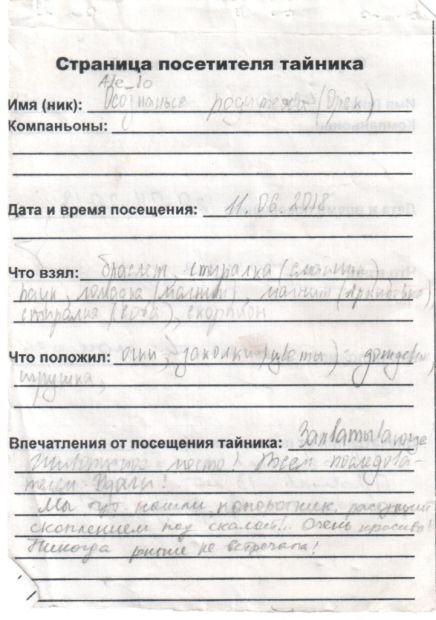 Страница посетителя тайника
Ale_lo
Имя (ник): Осознаные родители (Орск)
Компаньоны:
Дата и время посещения: 11.06.2018
Что взял: браслет, стиралка
паук, помада (магнит), магнит
стиралка, скорпион
Что положил: очки, заколки, цветы
игрушка,
Впечатления от посещения тайника: Захватывающе
живописное место! Всем последова-
телям Удачи!
Мы тут нашли папоротник, растущий
скоплением под скалой... Очень красиво!
Никогда раньше не встречала!